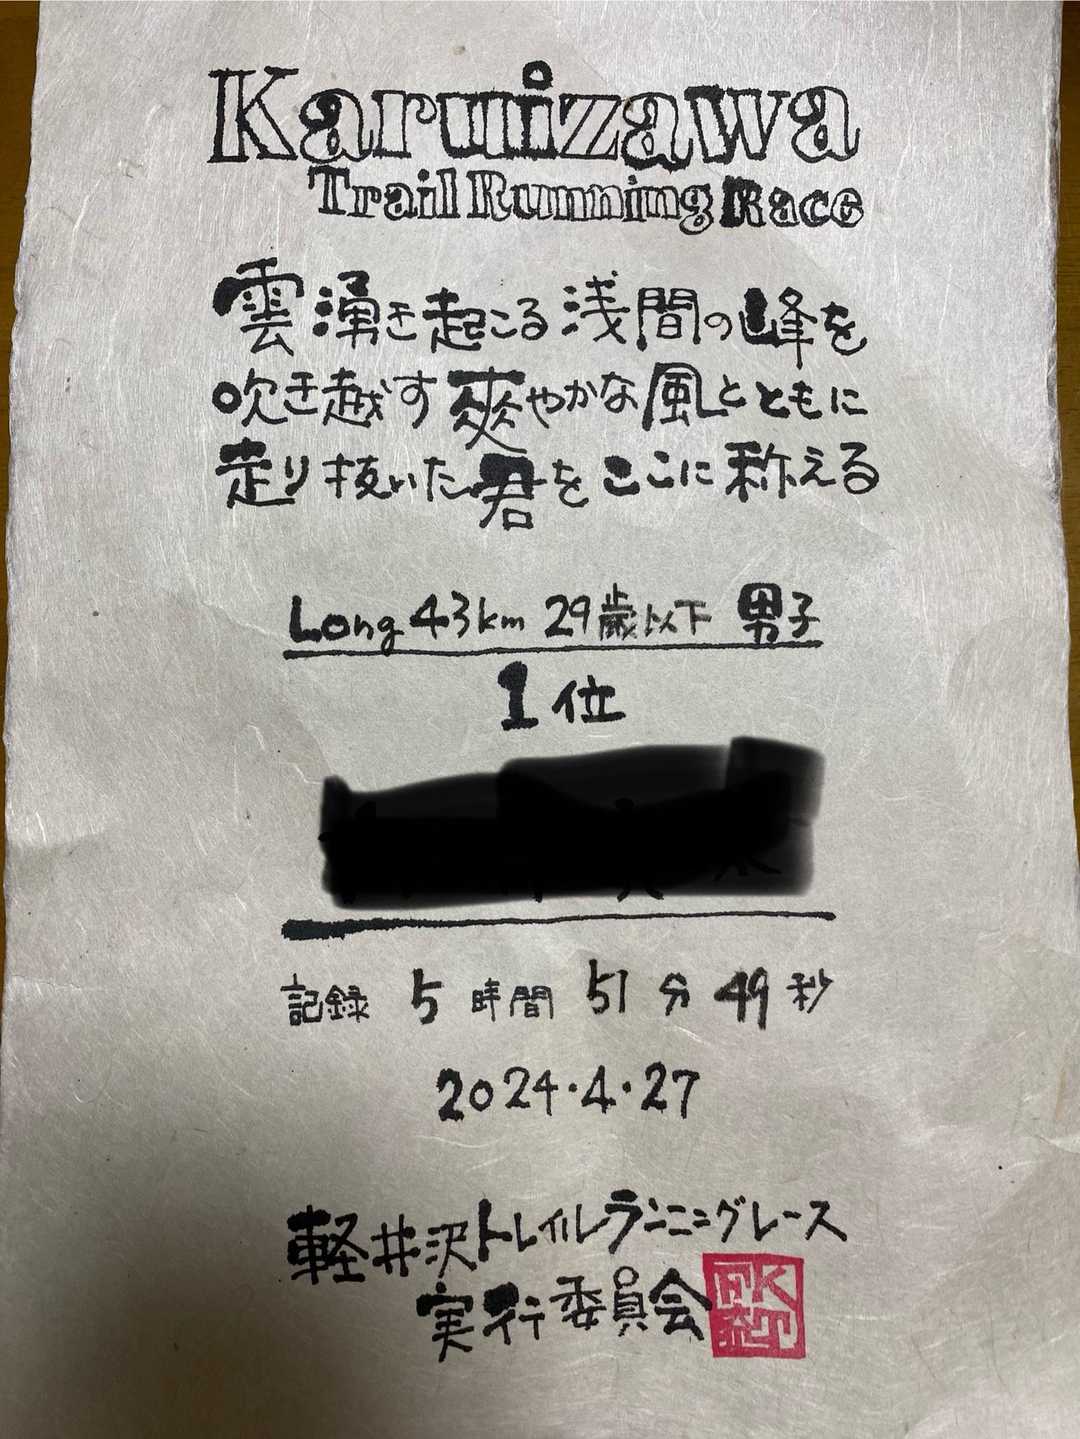 Karuizawa
Trail Running Race
雲湧き起こる浅間の峰を
吹き越す爽やかな風とともに
走り抜いた君をここに称える
Long 43km 29歳以下 男子
1位
記録 5時間51分49秒
2024・4・27
軽井沢トレイルランニングレース
実行委員会